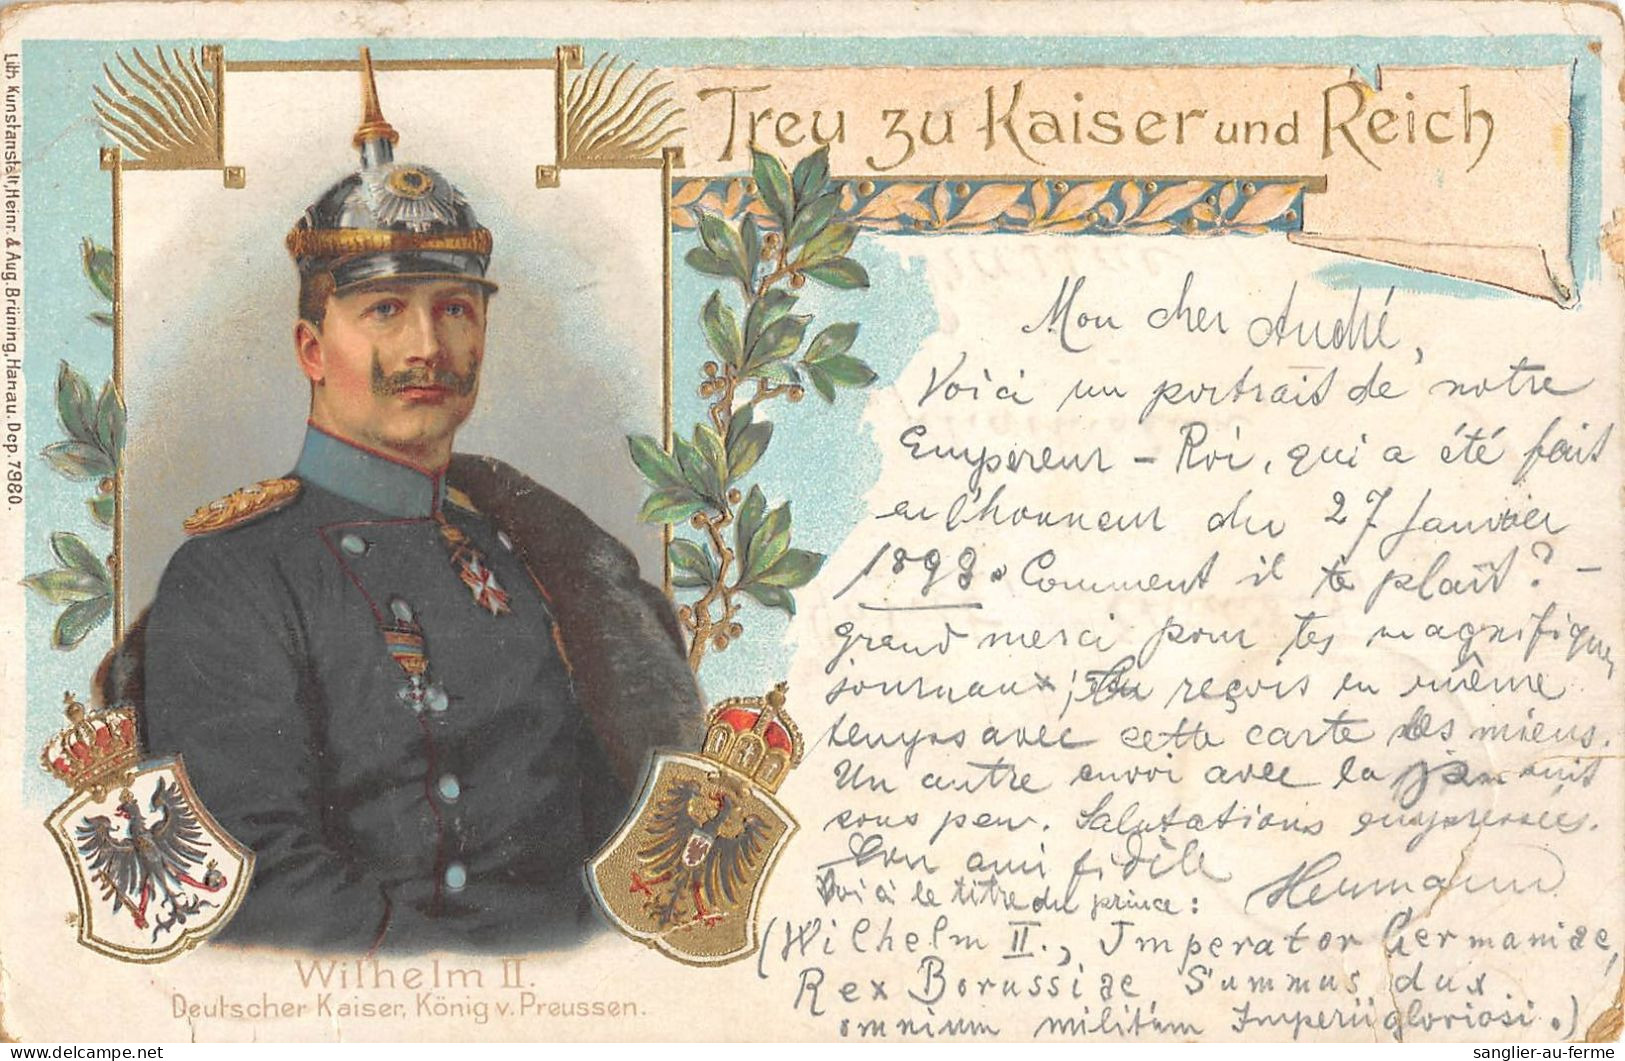 Treu zu Kaiser und Reich
Lith. Kunstanstalt, Heinr. & Aug. Brüning, Hanau. Dep. 7980.
Mon cher André,
Voici un portrait de notre
Empereur - Roi, qui a été fait
en l'honneur du 27 Janvier
1898. Comment il te plaît? -
grand merci pour tes magnifiques
journaux; tu reçois en même
temps avec cette carte les miens.
Un autre envoi avec la suit
sous peu. Salutations empressées.
Ton ami fidèle
Hermann
Voici le titre du prince:
(Wilhelm II., Imperator Germaniae,
Rex Borussiae, Summus dux
omnium militum Imperii gloriosi.)
Wilhelm II.
Deutscher Kaiser, König v. Preussen.
sanglier-au-ferme